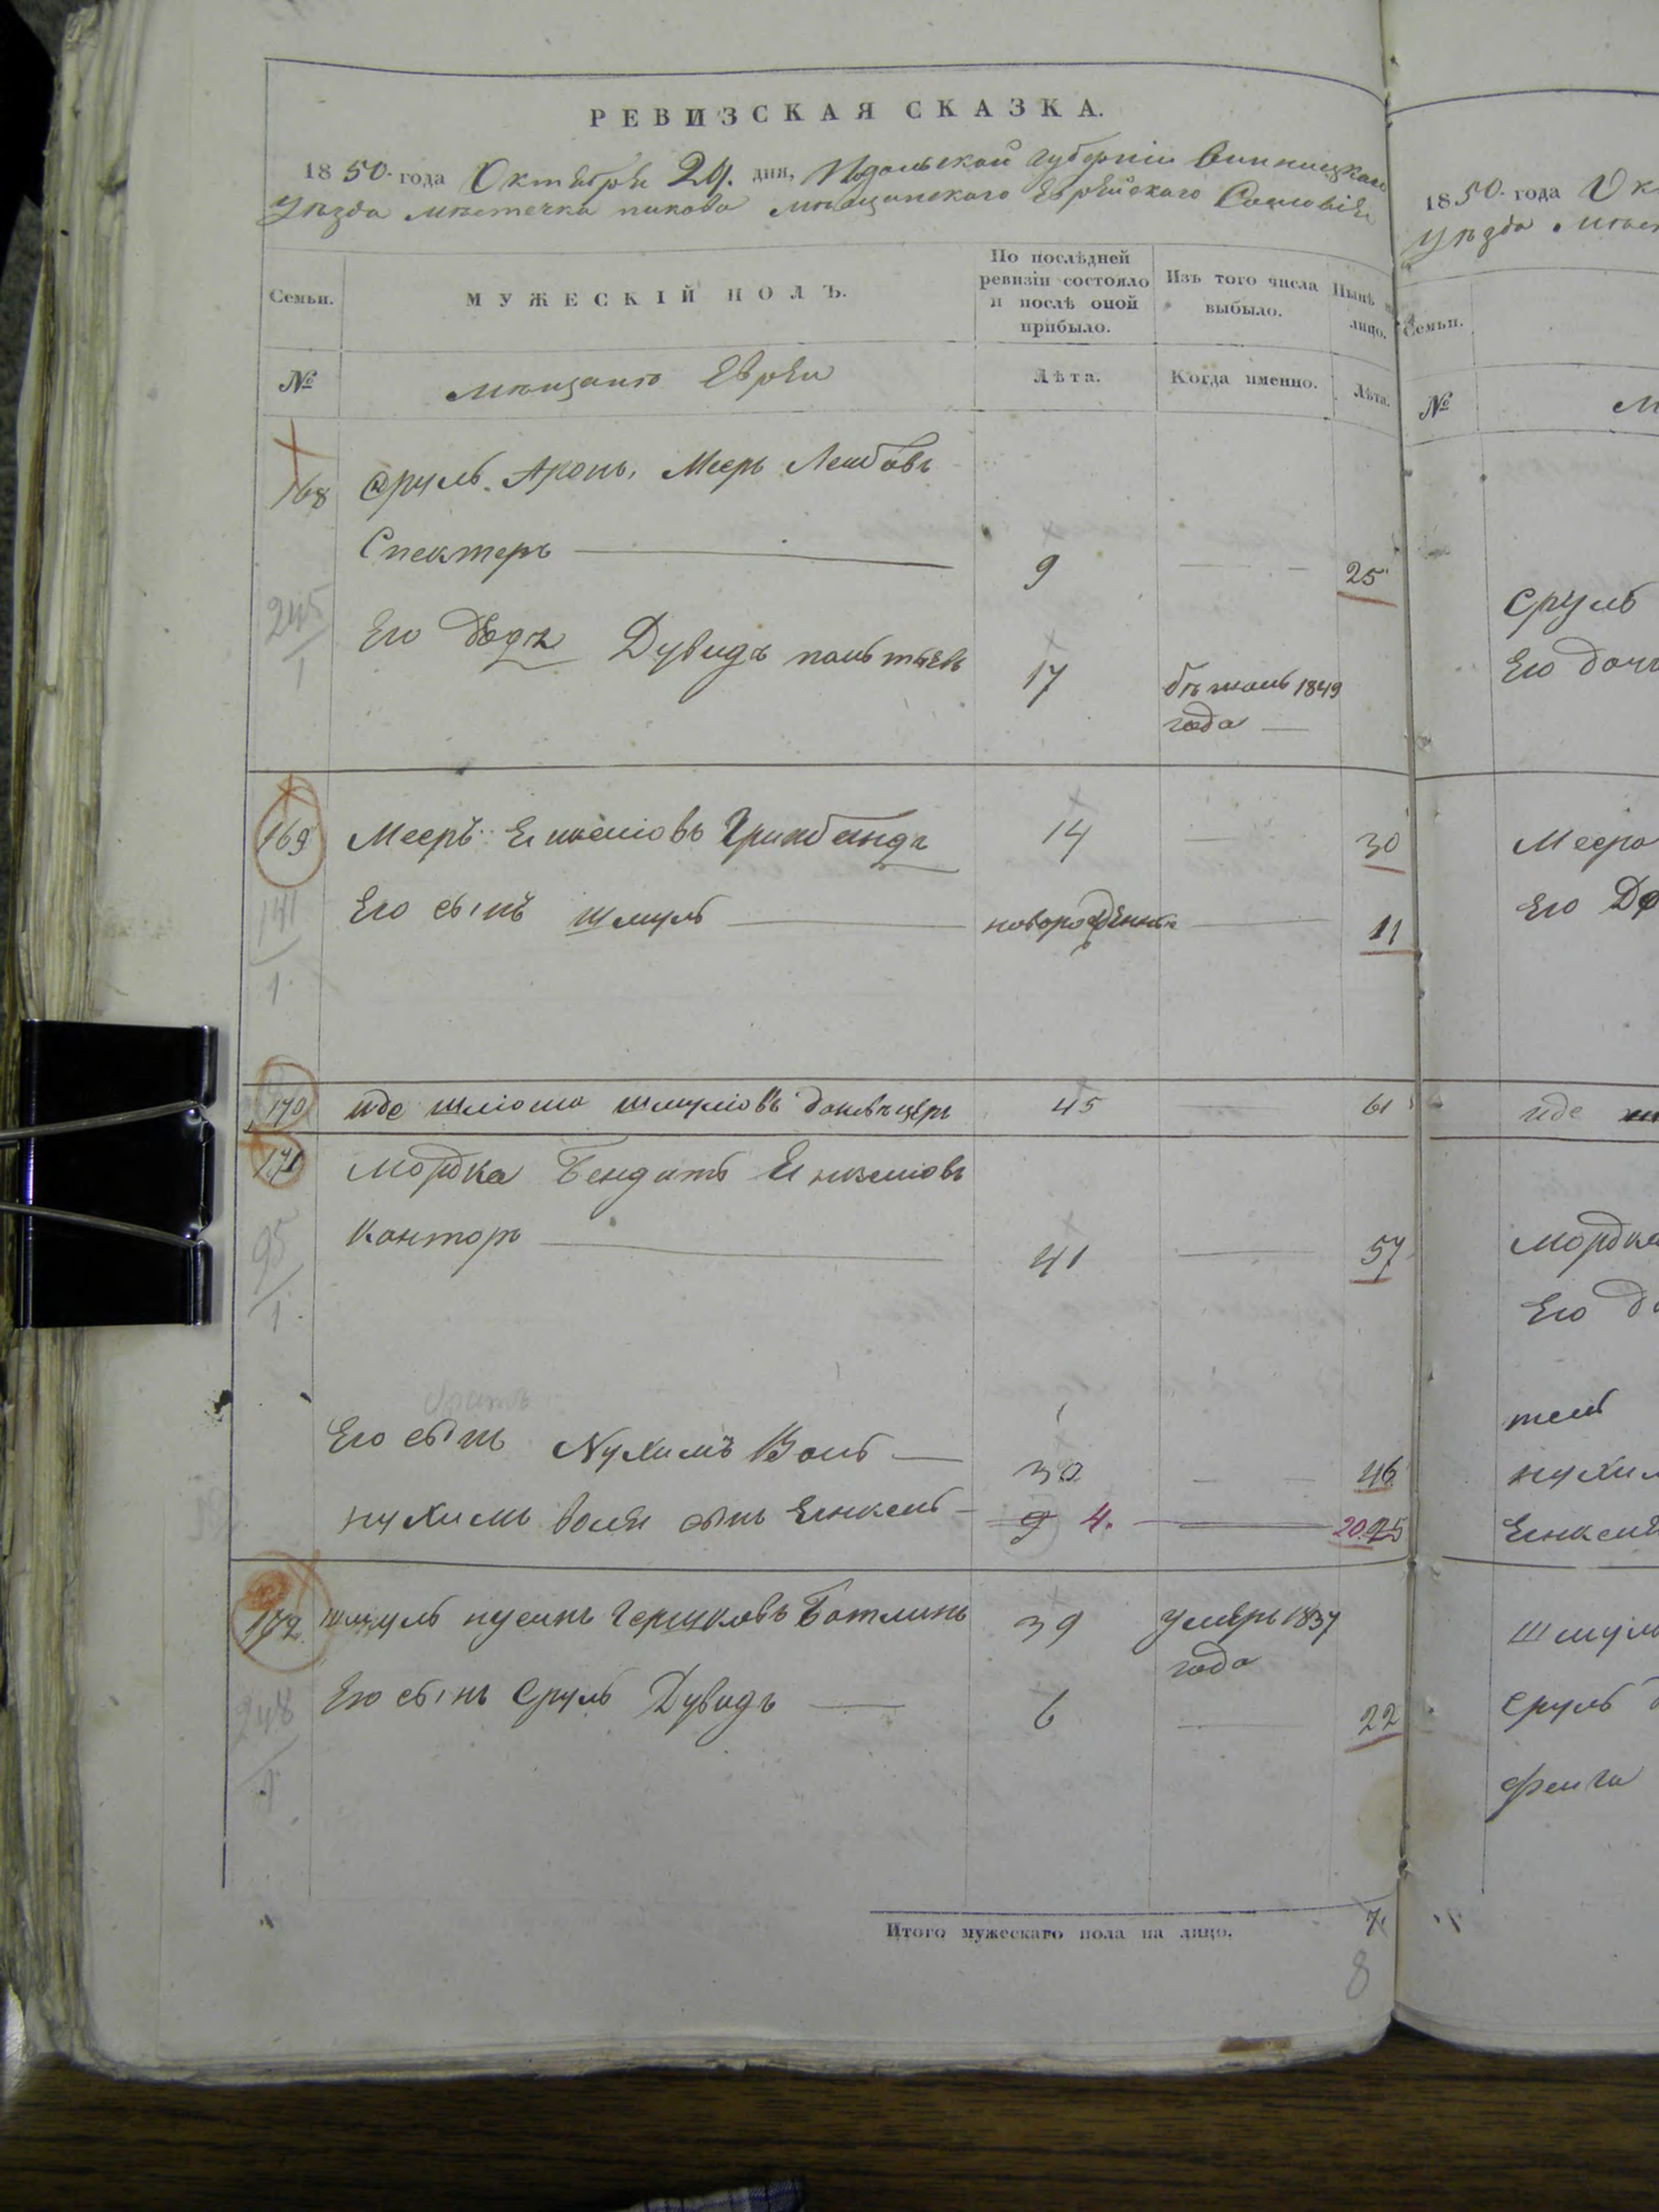 РЕВИЗСКАЯ СКАЗКА.
1850 года Октября 29. дня, Подольской губерніи Винницкаго
уѣзда мѣстечка пикова мѣщанскаго Еврейскаго Сословія
Семьи.
МУЖЕСКІЙ ПОЛЪ.
По послѣдней ревизіи состояло и послѣ оной прибыло.
Изъ того числа выбыло.
Нынѣ на лицо.
№ мѣщане Евреи Лѣта. Когда именно. Лѣта.
168 Сруль Аронъ, Мееръ Лейбовъ
Спекторъ 9 25
245
1
Его Дядя Дувидъ 17 бѣжалъ 1849
года
169 Мееръ Еінкеліовъ 14 30
Его сынъ шмуль новорожденный 11
141
1
170 иде шліома шмуліовъ 45 61
171 Мордка Бендитъ Еінкеліовъ
Канторъ 41 57
95
1
Его сынъ Нухимъ Воль 30 46
нухима воля сынъ Еінкель 9 4. 20. 25
172 шмуль нусинъ Гершковъ Ботлинъ 39 умеръ 1837
года
Его сынъ Сруль Дувидъ 6 22
248
1
Итого мужескаго пола на лицо. 7
8
1850 года Ок
уѣзда
Семьи.
№
Сруль
Его дочь
Меера
Его
иде
Мордка
Его
нухим
Еінкель
шмул
Сруль
фейга